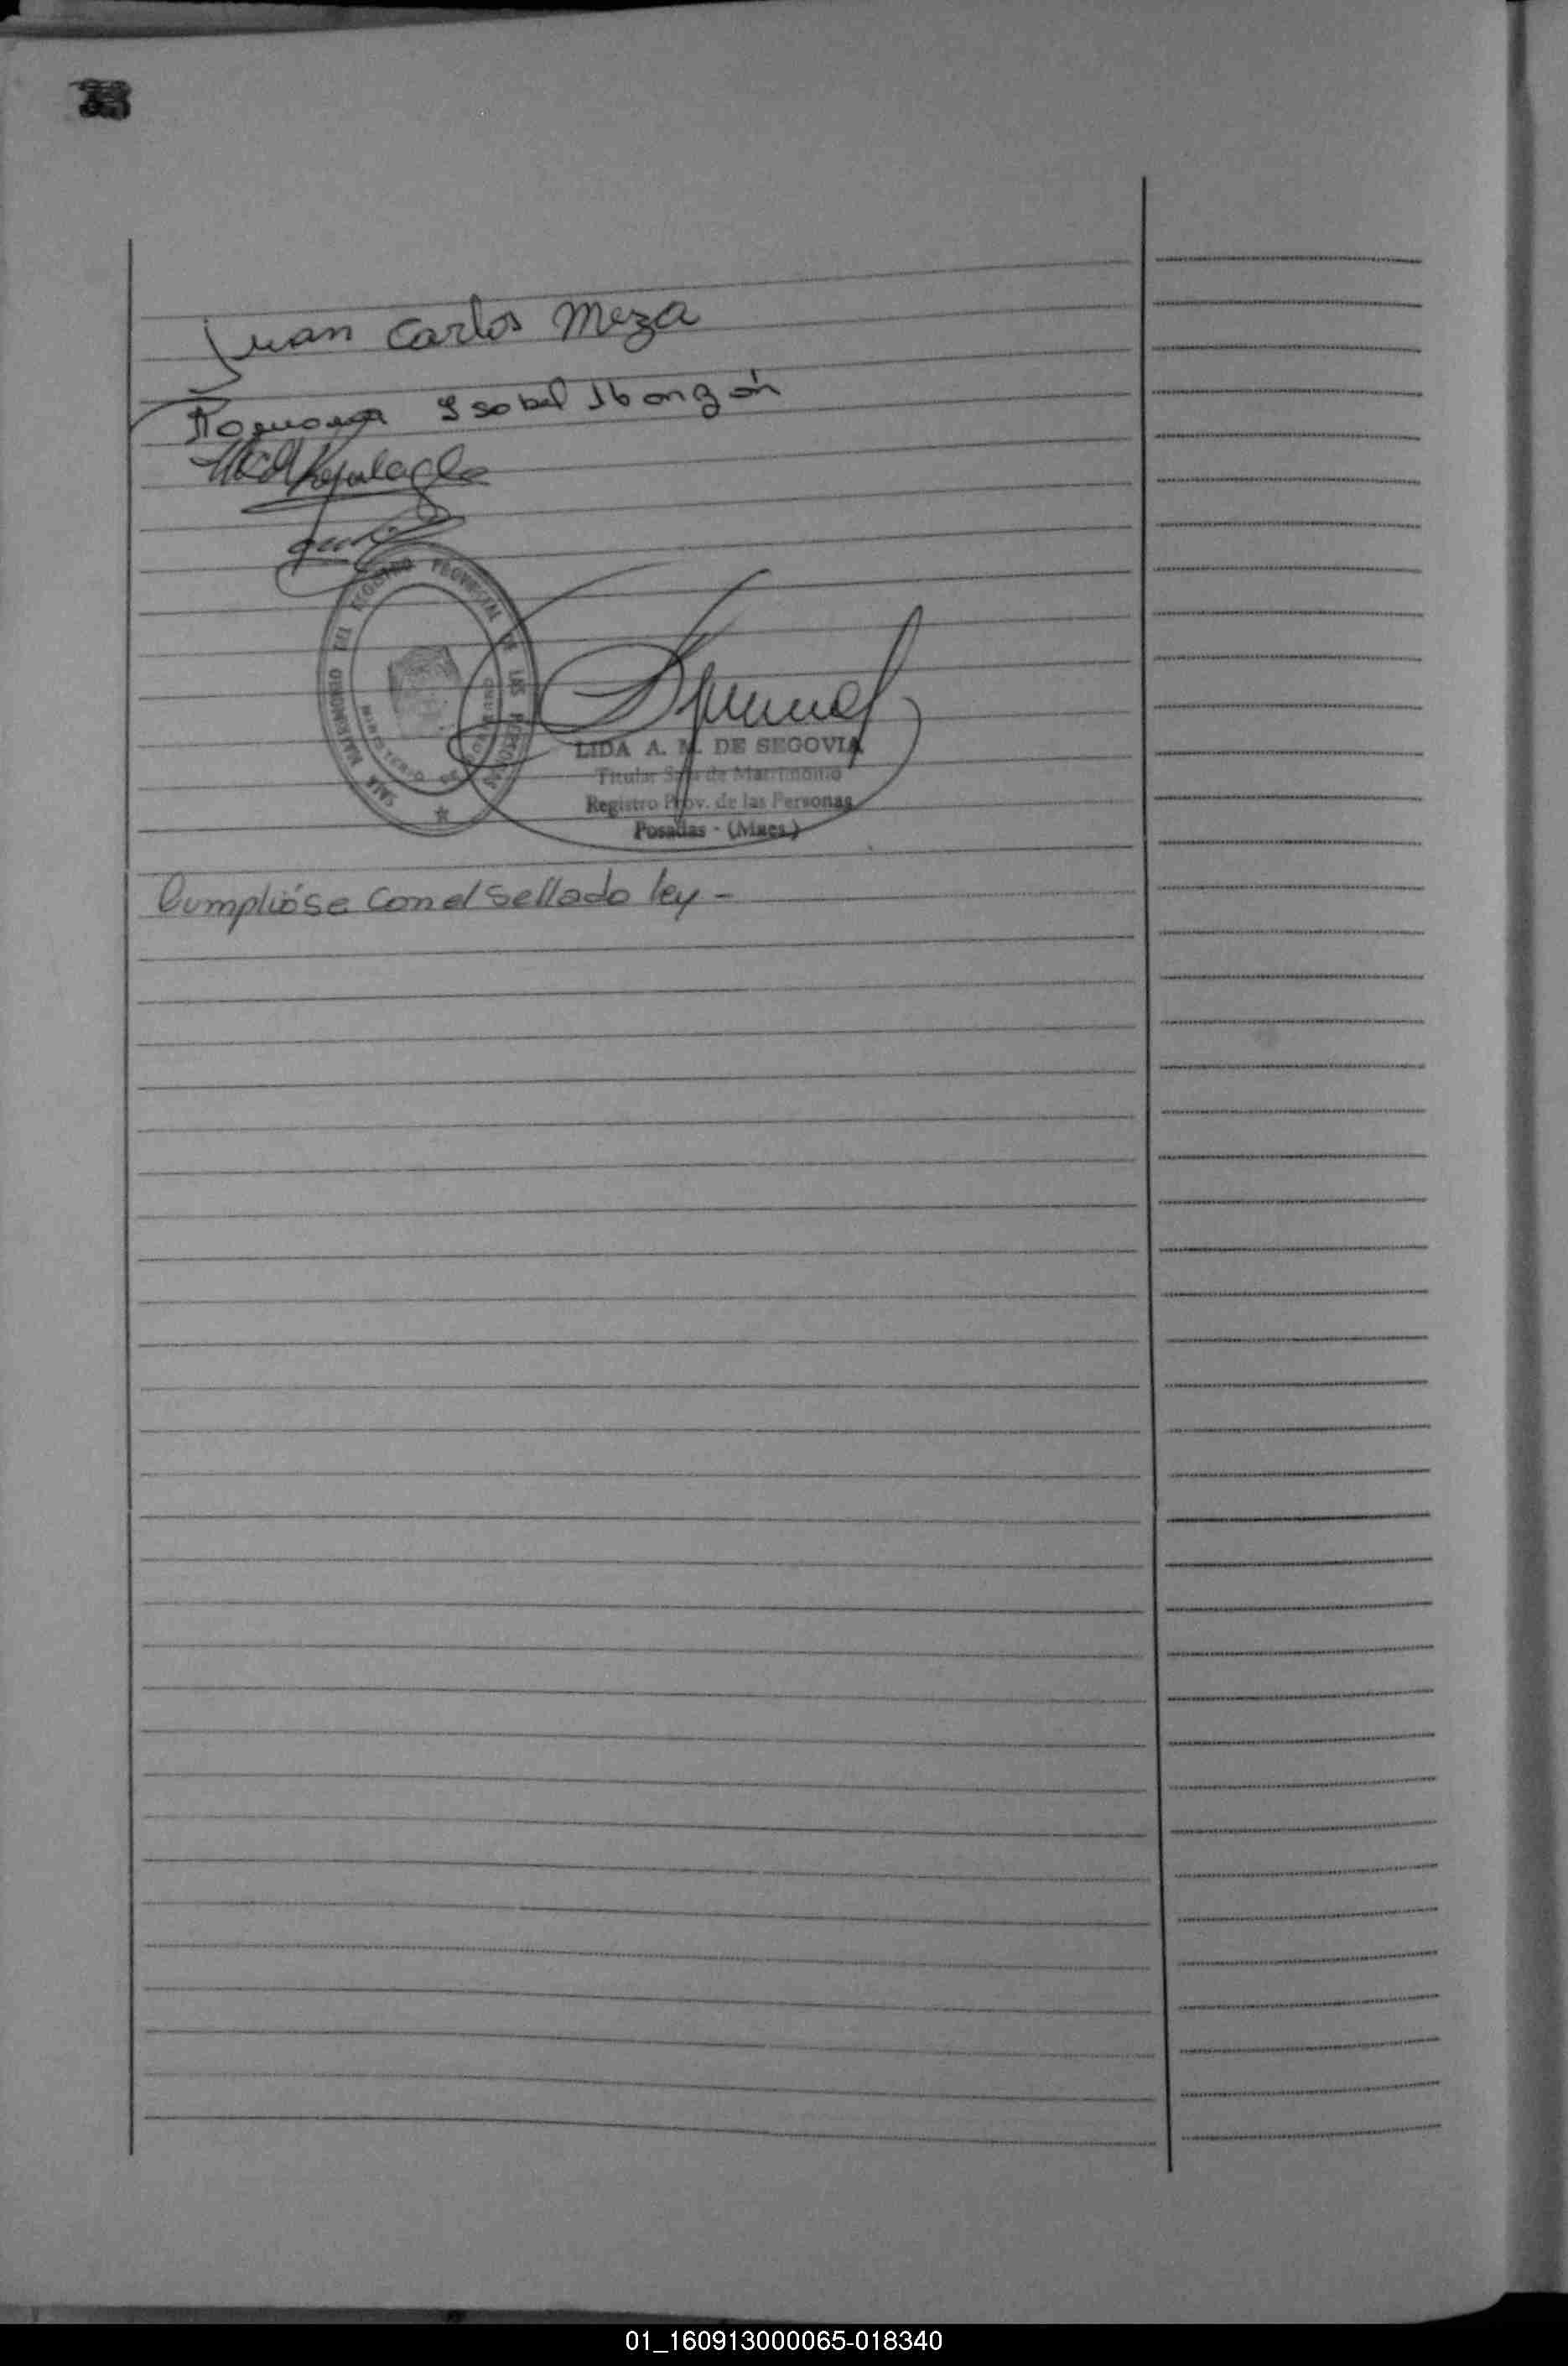 Juan Carlos Meza
Isabel Ibarzán
SALA MATRIMONIO DEL REGISTRO PROVINCIAL DE LAS PERSONAS
LIDA A. M. DE SEGOVIA
Titular Sala de Matrimonio
Registro Prov. de las Personas
Posadas - (Mnes.)
Cumplióse con el Sellado ley -
01_160913000065-018340